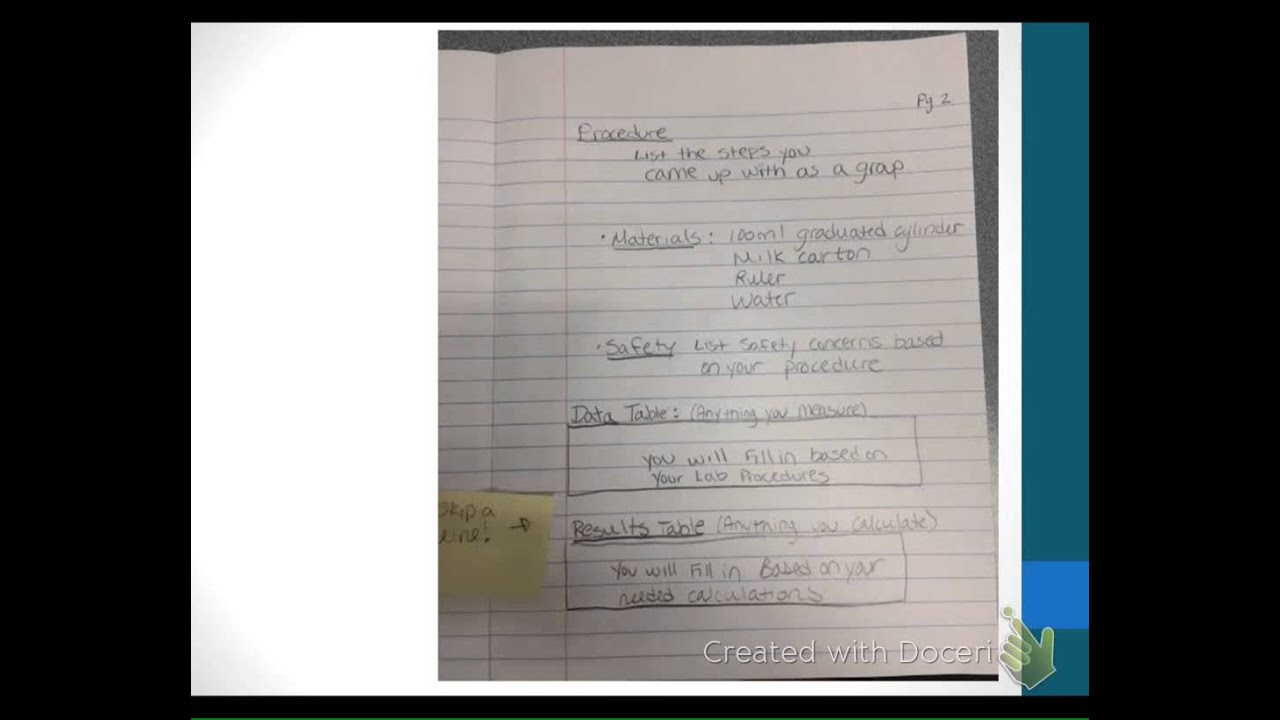 Pg 2
Procedure
List the steps you
came up with as a group
• Materials: 100ml graduated cylinder
Milk carton
Ruler
Water
• Safety List Safety concerns based
on your procedure
Data Table: (Anything you measure)
You will Fill in based on
Your Lab Procedures
Skip a
Line! →
Results Table (Anything you calculate)
You will Fill in Based on your
needed calculations
Created with Doceri